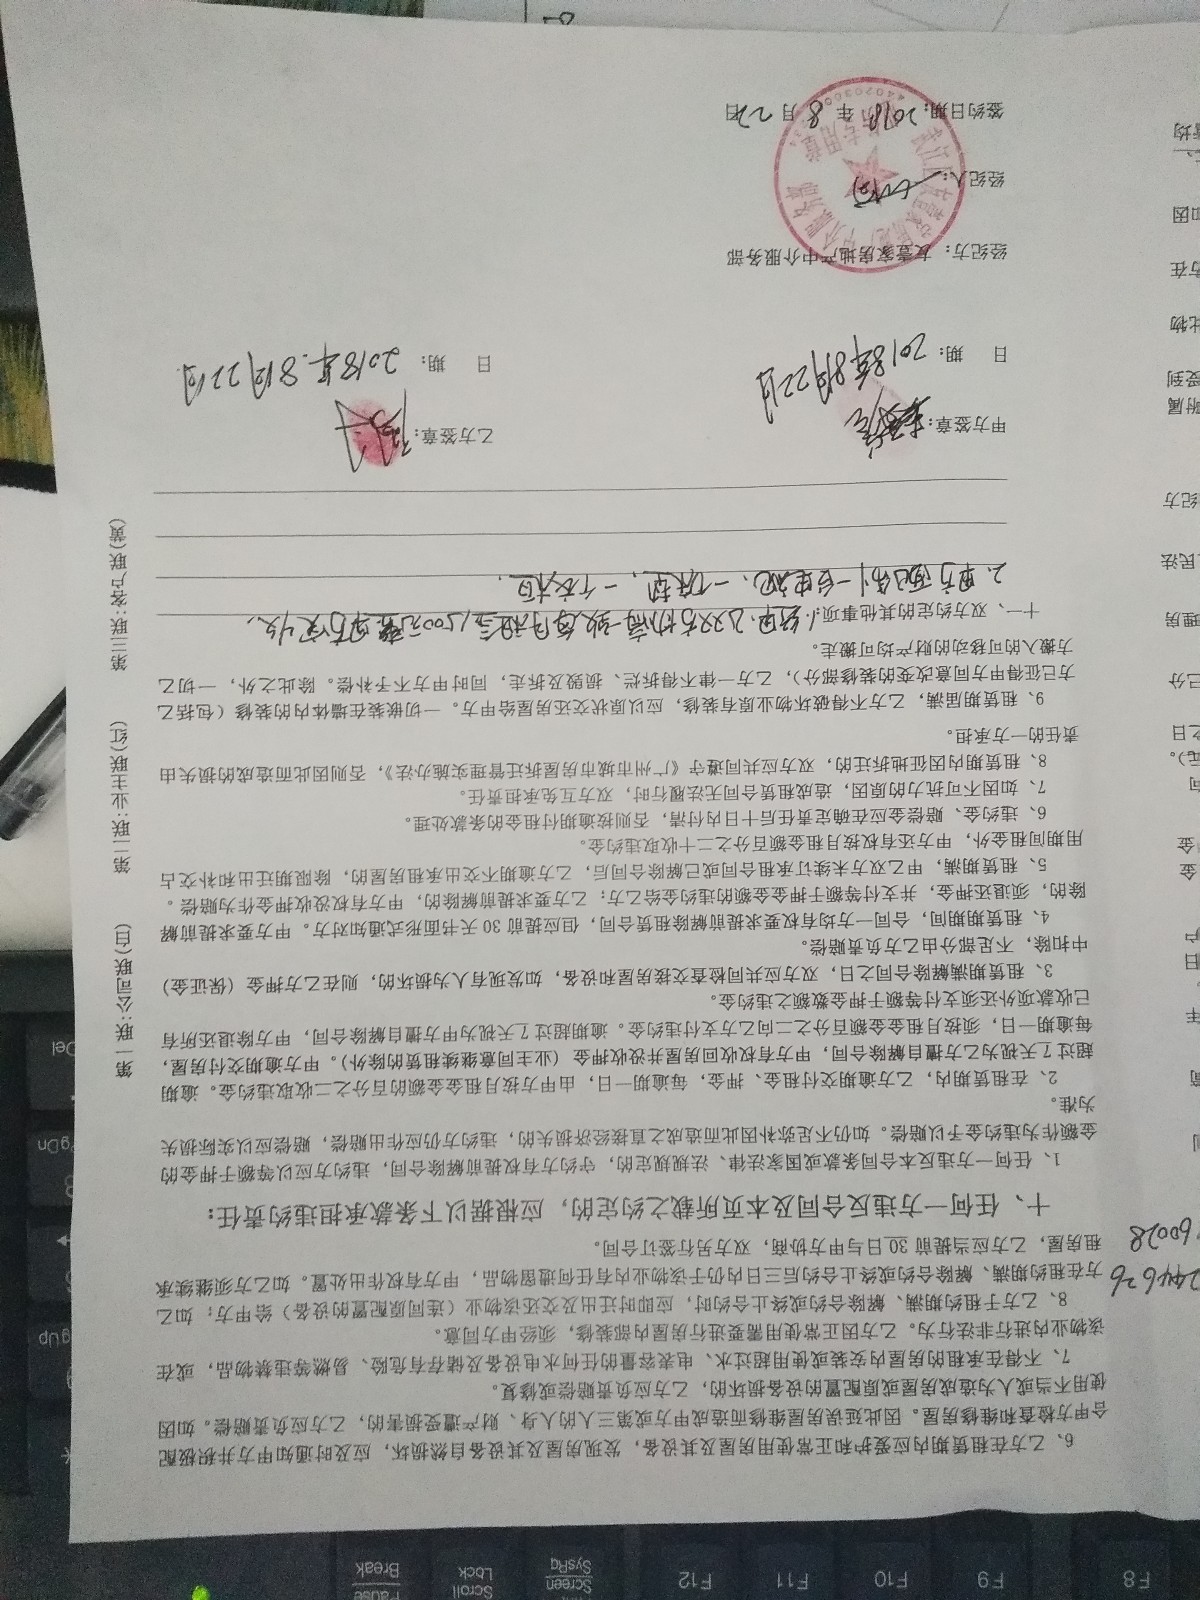 6、乙方在租赁期内应爱护和正常使用房屋及其设备，发现房屋及其设备自然损坏，应及时通知甲方并积极配
合甲方检查和维修房屋。因此延误房屋维修而造成甲方或第三人的人身、财产遭受损害的，乙方应负责赔偿。如因
使用不当或人为造成房屋或原配置的设备损坏的，乙方应负责赔偿或修复。
7、不得在承租的房屋内安装或使用超过水、电表容量的任何水电设备及储存有危险、易燃等违禁物品，或在
该物业内进行非法行为。乙方因正常使用需要进行房屋内部装修，须经甲方同意。
8、乙方于租约期满、解除合约或终止合约时，应即时迁出及交还该物业（连同原配置的设备）给甲方；如乙
方在租约期满、解除合约或终止合约后三日内仍于该物业内有任何遗留物品，甲方有权作出处置。如乙方须继续承
租房屋，乙方应当提前 30 日与甲方协商，双方另行签订合同。
十、任何一方违反合同及本页所载之约定的，应根据以下条款承担违约责任：
1、任何一方违反本合同条款或国家法律、法规规定的，守约方有权提前解除合同，违约方应以等额于押金的
金额作为违约金予以赔偿。如仍不足弥补因此而造成之直接经济损失的，违约方仍应作出赔偿，赔偿应以实际损失
为准。
2、在租赁期内，乙方逾期交付租金、押金，每逾期一日，由甲方按月租金金额的百分之二收取违约金。逾期
超过 7 天视为乙方擅自解除合同，甲方有权收回房屋并没收押金（业主同意继续租赁的除外）。甲方逾期交付房屋，
每逾期一日，须按月租金金额百分之二向乙方支付违约金。逾期超过 7 天视为甲方擅自解除合同，甲方除退还所有
已收款项外还须支付等额于押金数额之违约金。
3、租赁期满解除合同之日，双方应共同检查交接房屋和设备，如发现有人为损坏的，则在乙方押金（保证金）
中扣除，不足部分由乙方负责赔偿。
4、租赁期期间，合同一方均有权要求提前解除租赁合同，但应提前 30 天书面形式通知对方。甲方要求提前解
除的，须退还押金，并支付等额于押金金额的违约金给乙方；乙方要求提前解除的，甲方有权没收押金作为赔偿。
5、租赁期满，甲乙双方未续订承租合同或已解除合同后，乙方逾期不交出承租房屋的，除限期迁出和补交占
用期间租金外，甲方还有权按月租金额百分之二十收取违约金。
6、违约金、赔偿金应在确定责任后十日内付清，否则按逾期付租金的条款处理。
7、如因不可抗力的原因，造成租赁合同无法履行时，双方互免承担责任。
8、租赁期内因征地拆迁的，双方应共同遵守《广州市城市房屋拆迁管理实施办法》，否则因此而造成的损失由
责任的一方承担。
9、租赁期届满，乙方不得破坏物业原有装修，应以原状交还房屋给甲方。一切嵌装在墙体内的装修（包括乙
方已征得甲方同意改变的装修部分），乙方一律不得拆烂、损毁及拆走，同时甲方不予补偿。除此之外，一切乙
方搬入的可移动的财产均可搬走。
十一、双方约定的其他事项：1.经甲.乙双方协商一致每月租金1500元整甲方实收.
2.甲方配制一台电视.一张床.一个衣柜.
甲方签章：
乙方签章：
日 期：2018年8月22日
日 期：2018年.8月22日.
经纪方：友壹家房地产中介服务部
经纪人：
签约日期：2018 年 8 月 22日
第一联：公司联(白) 第二联：业主联(红) 第三联：客户联(黄)
60028
F8
F9
F10
F11
F12
Screen
SysRq
Scroll
Lock
Pause
Break
Del